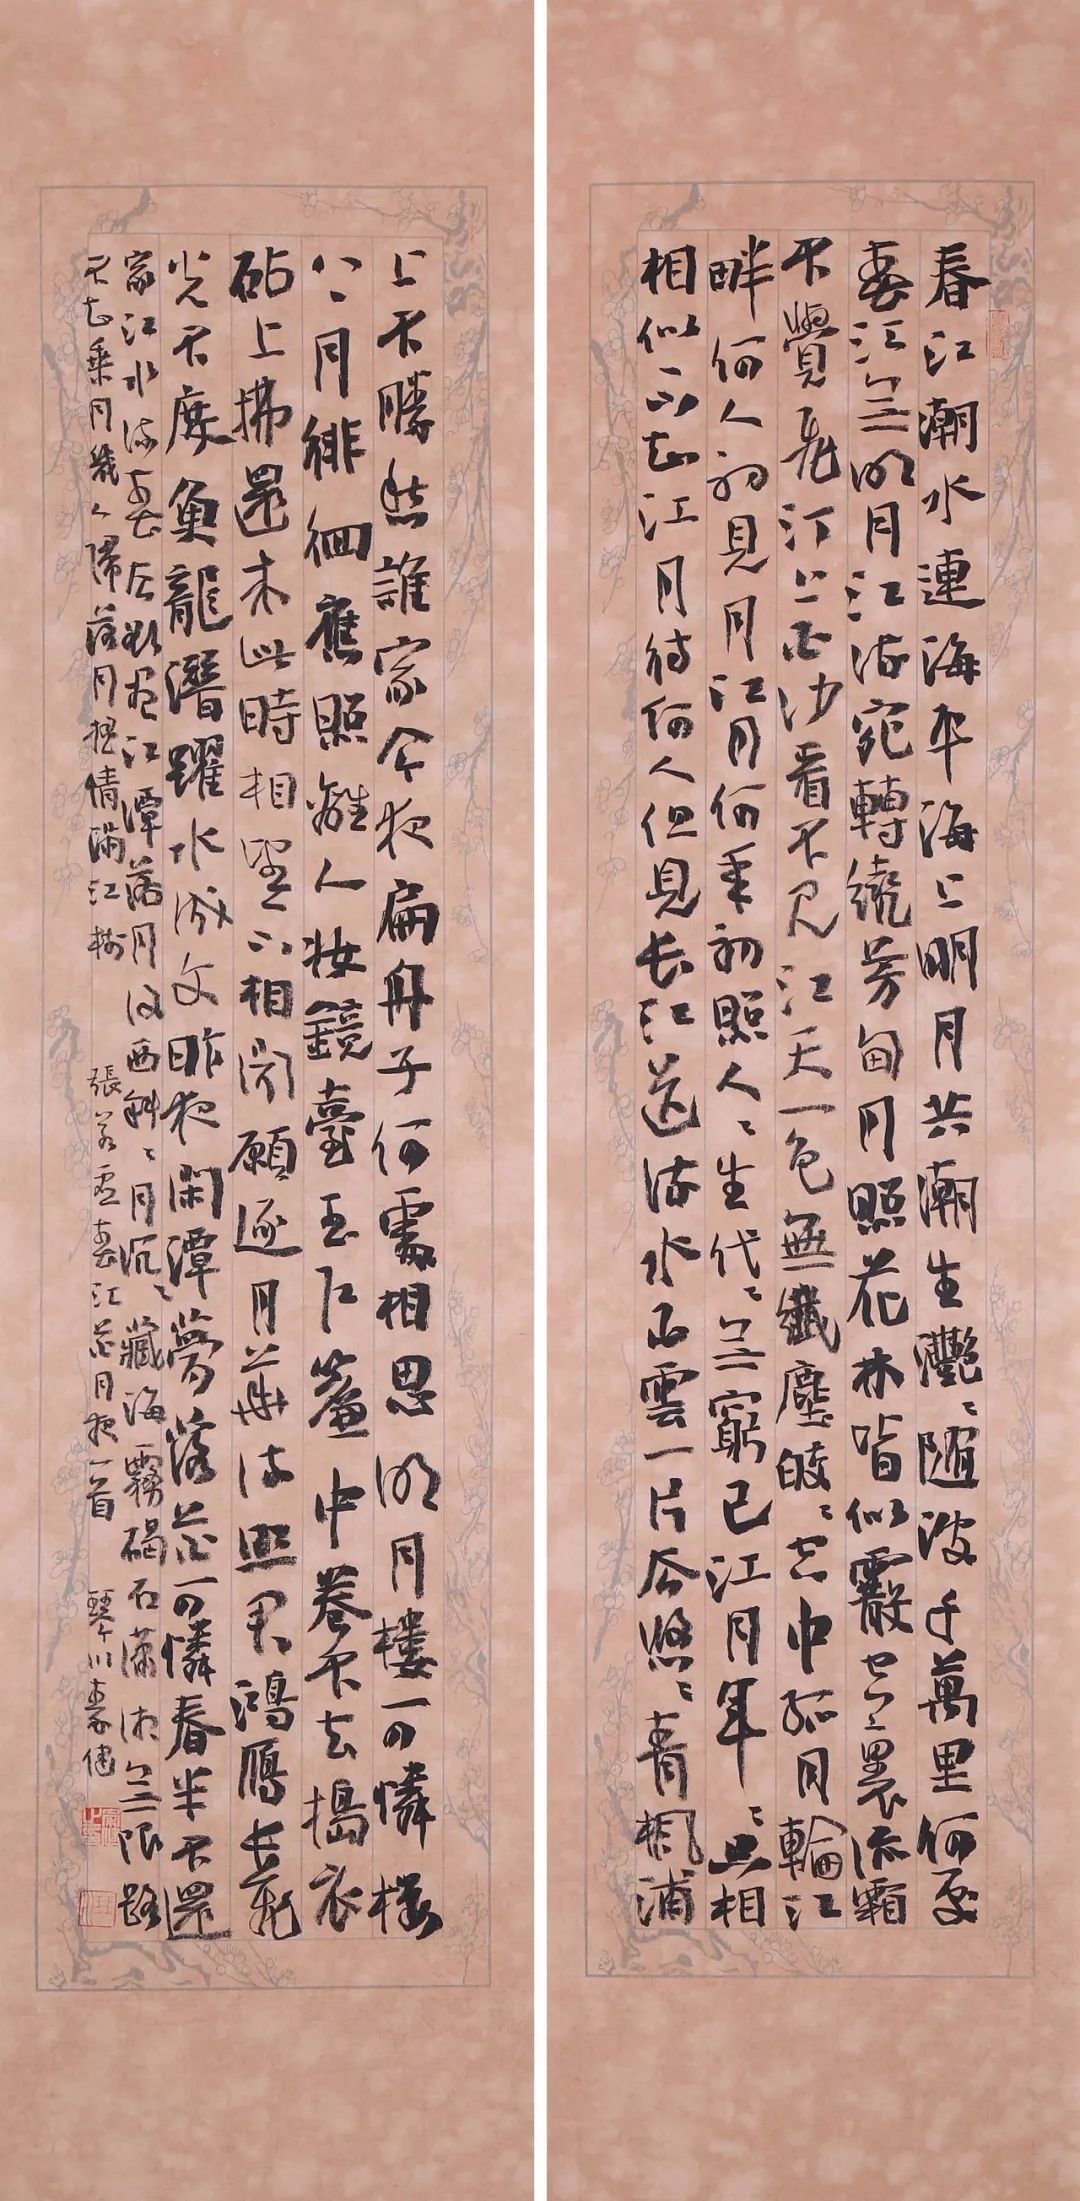 春江潮水連海平海上明月共潮生灩〻隨波千萬里何處
春江無明月江流宛轉繞芳甸月照花林皆似霰空裏流霜
不覺飛汀上白沙看不見江天一色無纖塵皎〻空中孤月輪江
畔何人初見月江月何年初照人〻生代〻無窮已江月年〻只相
相似不知江月待何人但見長江送流水白雲一片去悠〻青楓浦
上不勝愁誰家今夜扁舟子何處相思明月樓可憐樓
上月徘徊應照離人妝鏡臺玉戶簾中卷不去搗衣
砧上拂還來此時相望不相聞願逐月華流照君鴻雁長飛
光不度魚龍潛躍水成文昨夜閑潭夢落花可憐春半不還
家江水流春去欲盡江潭落月復西斜〻月沉〻藏海霧碣石瀟湘無限路
不知乘月幾人歸落月搖情滿江樹 張若虛春江花月夜一首 琴川李健